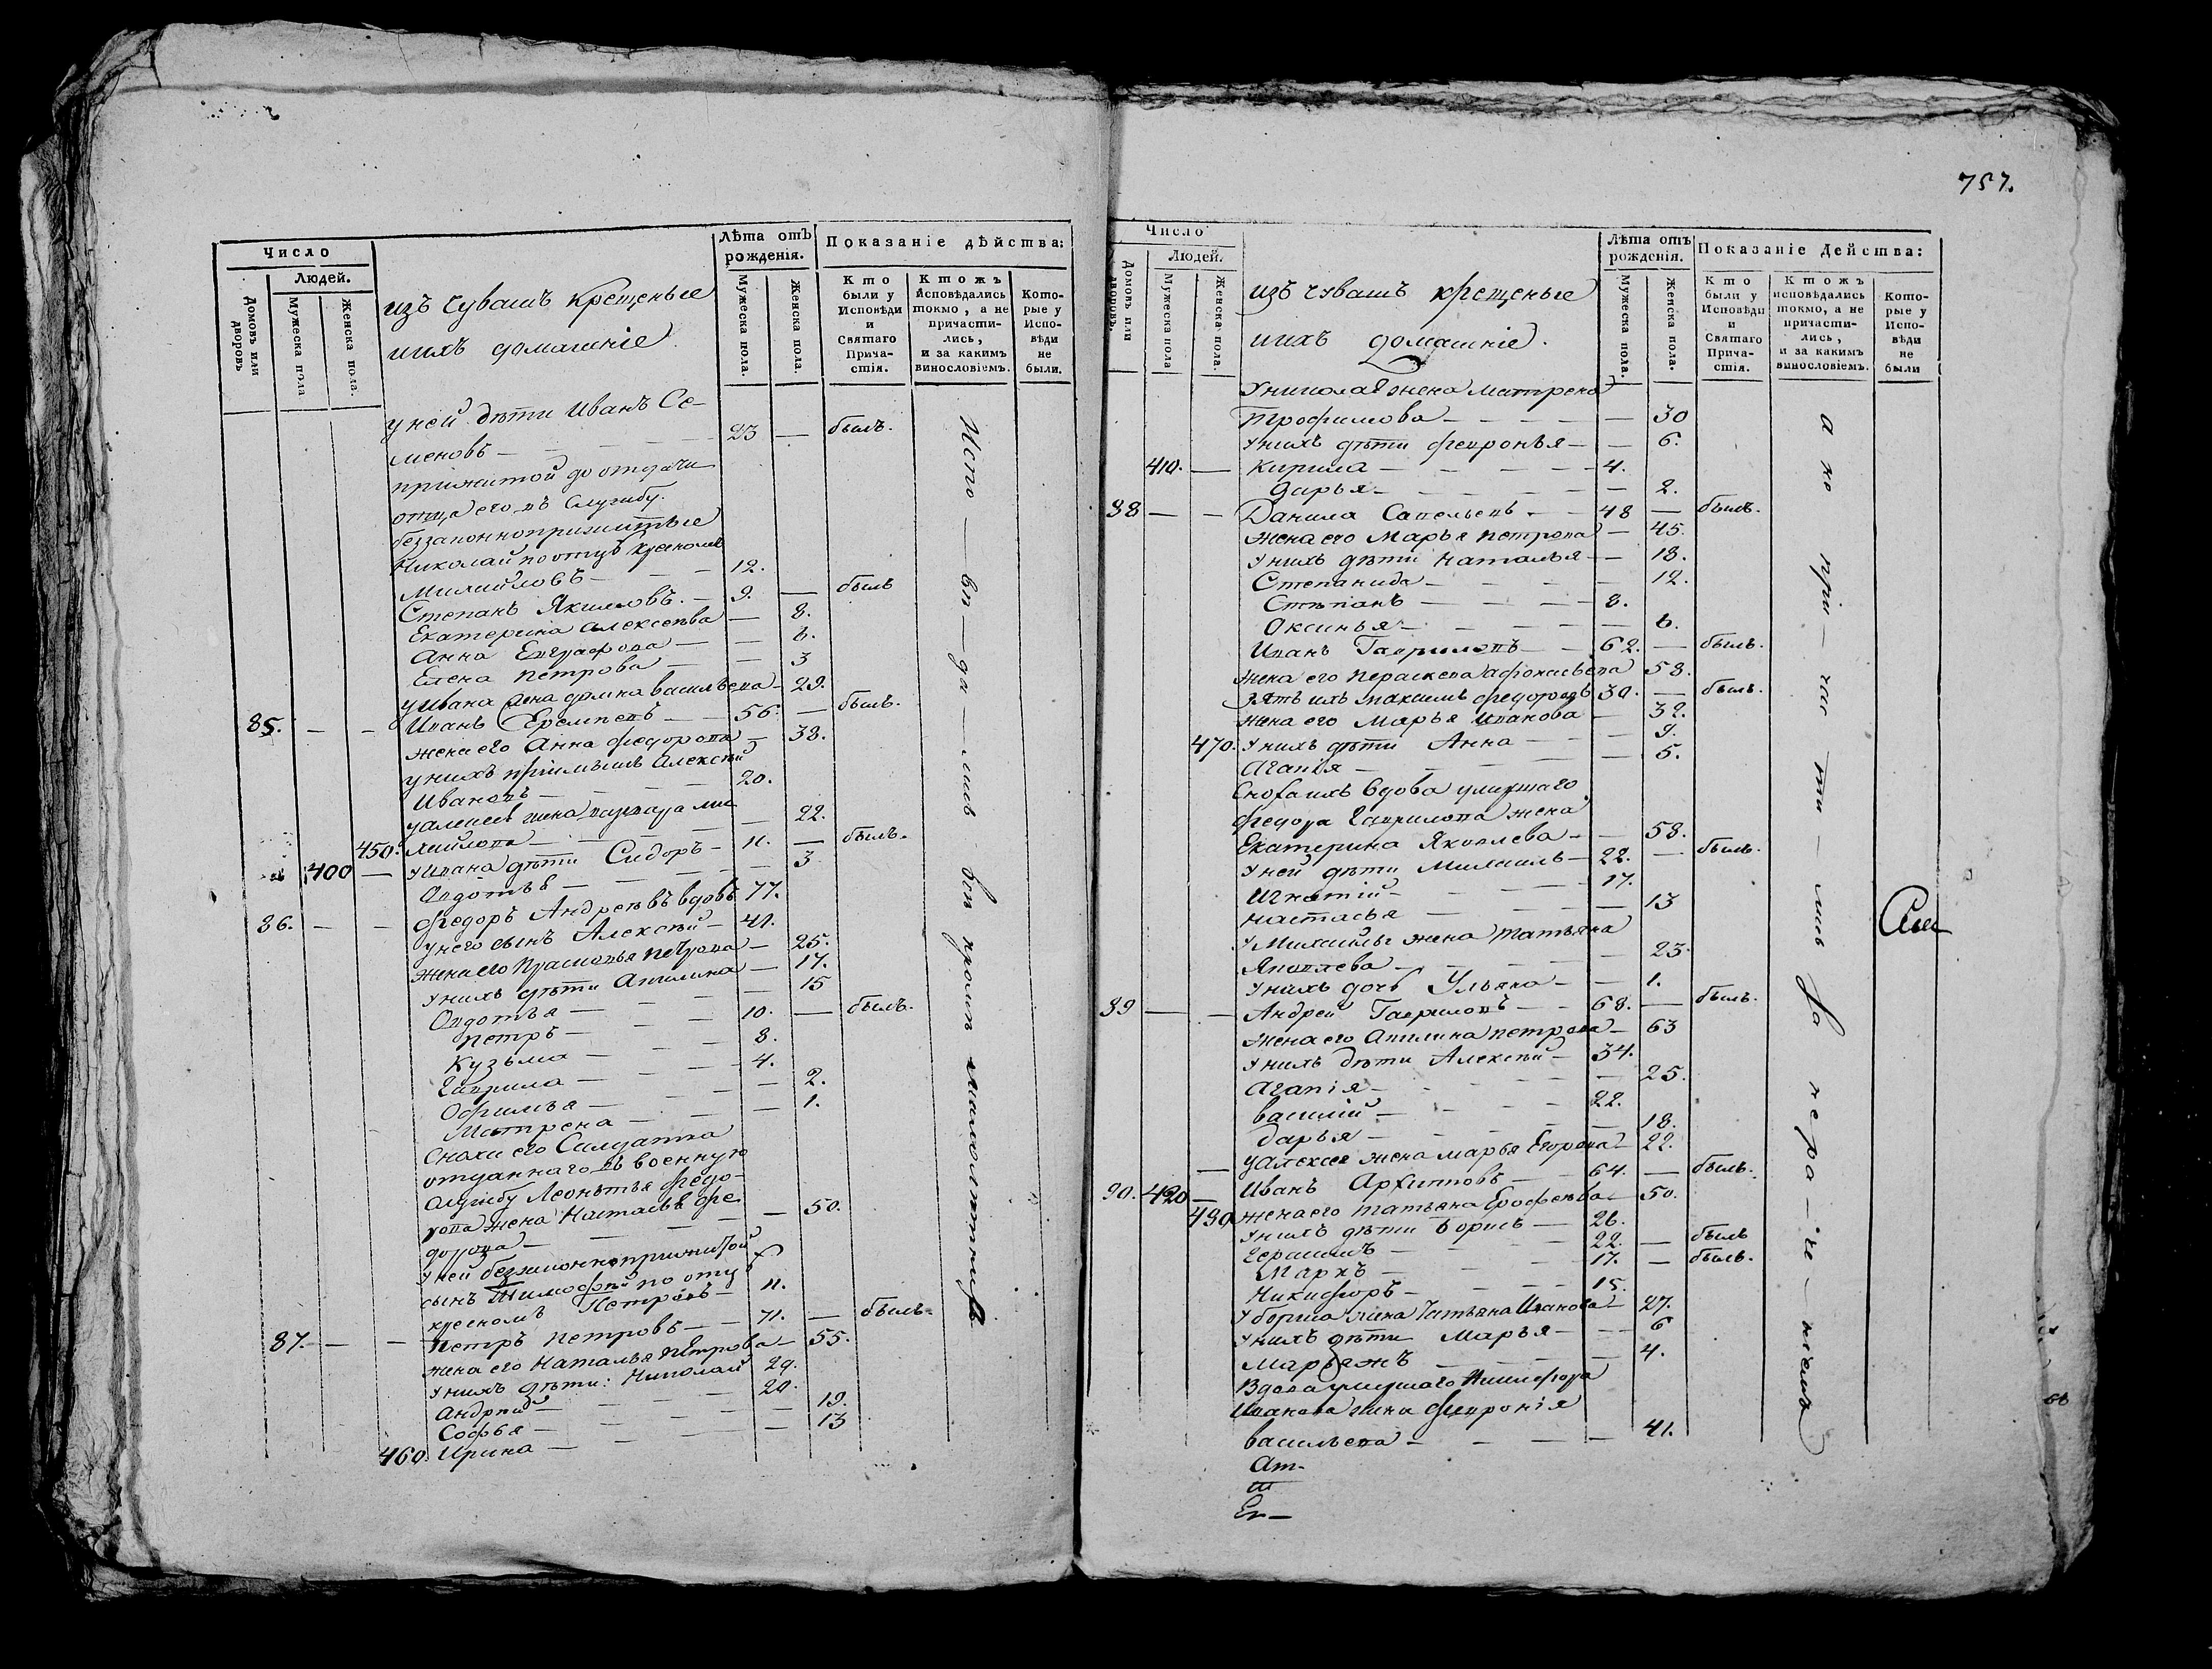 757.
Число
Людей.
Домовъ или дворовъ
Мужеска пола
Женска пола.
изъ Чувашъ Крещеные
иихъ домашніе.
Лѣта отъ рожденія.
Мужеска пола.
Женска пола.
Показаніе дѣйства:
Кто были у Исповѣди и Святаго Прича-стія.
Ктожъ Исповѣдались токмо, а не причасти-лись, и за какимъ винословіемъ.
Кото-рые у Испо-вѣди не были.
уней дѣти Иванъ Се-
меновъ — 23 — былъ.
прижитой до отдачи
отца его въ Службу.
беззаконноприжитые
Николай по отцѣ крестномъ
Михайловъ — 12.
Степанъ Якимовъ. — 9. — былъ
Екатерина алексеева — 8.
Анна Евграфова — 6.
Елена Петрова — 3
уИвана жена васильева — 29.
85. — — Иванъ Еремѣевъ — 56. — былъ.
жена его Анна Федорова — 38.
унихъ пріимышъ Алексѣй
Ивановъ — 20.
уалексея жена варвара ми
450. хайлова — 22.
400 — уИвана дѣти Сидоръ — 11. — былъ.
Овдотья — 3
86. — — Федоръ Андреевъ вдовъ 77.
унего сынъ Алексѣй — 41.
жена его Прасковья петрова — 25.
унихъ дѣти Акилина — 17.
Овдотья — 15
Петръ — 10. — былъ.
Кузьма — 8.
Гаврила — 4.
Офимья — 2.
Матрена — 1.
Снохи его Салдатка
отданнаго въ военную
Службу Леонтья федо-
рова жена Настасья фе
дорова — 50.
уней беззаконноприжитой
сынъ Тимофѣй по отцу
крестномъ Петровъ — 11.
87. — — Петръ Петровъ — 71. — былъ.
жена его Наталья Петрова — 55.
унихъ дѣти: Николай 29.
Андрей — 20.
Софья — 19.
460. Ирина — 13
Испо — вѣ — да — лись
Число
Людей.
Домовъ или дворовъ.
Мужеска пола
Женска пола.
изъ чувашъ крещеные
иихъ домашніе.
Лѣта отъ рожденія.
Мужеска пола.
Женска пола.
Показаніе Действа:
Кто были у Исповѣди и Святаго Прича-стія.
Ктожъ исповѣдались токмо, а не причасти-лись, и за какимъ винословіемъ.
Кото-рые у Испо-вѣди не были
Униколая жена Матрена
Трофимова — 30
Унихъ дѣти февронья — 6.
410. — Кирила — 4.
Дарья — 2.
88 — — Данила Савельевъ — 48 — былъ.
жена его Марья петрова — 45.
Унихъ дѣти Наталья — 18.
Степанида — 12.
Степанъ — 8.
Оксинья — 6.
Иванъ Гавриловъ — 62. — былъ.
жена его Параскева афонасьева 58.
Зять ихъ максимъ федоровъ 30. — былъ.
жена его Марья Иванова — 32.
470. Унихъ дѣти Анна — 9.
Агапія — 5.
Сноха ихъ вдова умершаго
Федора Гаврилова жена
Екатерина Яковлева — 58.
Уней дѣти Михаилъ — 22. — былъ.
Игнатій — 17.
Настасья — 13
УМихайлы жена татьяна
Яковлева — 23.
Унихъ дочь Ульяна — 1.
89 — — Андрей Гавриловъ — 68. — былъ.
жена его Акилина петрова — 63
Унихъ дѣти Алексѣй — 34.
Агапія — 25.
василій — 22.
Дарья — 18.
— уАлексея жена марья Егорова — 22.
90. 420 — Иванъ Архиповъ — 64. — былъ.
480 жена его татьяна Ерофеева — 50.
Унихъ дѣти Борисъ — 26.
Герасимъ — 22. — былъ
Маркъ — 17. — былъ.
Никифоръ — 15.
Убориса жена Татьяна Иванова — 27.
Унихъ дѣти Марья — 6
Марья жъ — 4.
Вдова умершаго Никифора
Иванова жена Февронія
васильева — 41.
а не при — час — ти — лись За нера — че — ніемъ